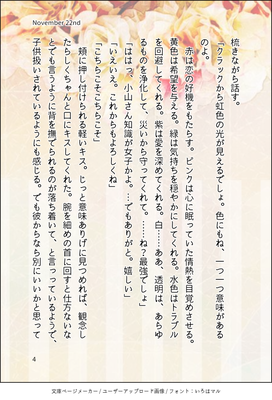 November 22nd
梳きながら話す。
「クラックから虹色の光が見えるでしょ。色にもね、一つ一つ意味がある
のよ。
　赤は恋の好機をもたらす。ピンクは心に眠っていた情熱を目覚めさせる。
黄色は希望を与える。緑は気持ちを穏やかにしてくれる。水色はトラブル
を回避してくれる。紫は愛を深めてくれる。白……ああ、透明は、あらゆ
るものを浄化して、災いから守ってくれて。……ね？最強でしょ」
「ははっ。小山さん知識が女子かよ。…でもありがと。嬉しい」
「いえいえ。これからもよろしくね」
「こちらこそこちらこそ」
　頬に押し付けられる軽いキス。じっと意味ありげに見つめれば、観念し
たらしくちゃんと口にキスしてくれた。腕を細めの首に回すと仕方ないな
とでも言うように背を撫でられるのが落ち着いて、と言っているようで、
子供扱いされているようにも感じる。でも彼からなら別にいいかと思って
4
文庫ページメーカー / ユーザーアップロード画像 / フォント：いろはマル